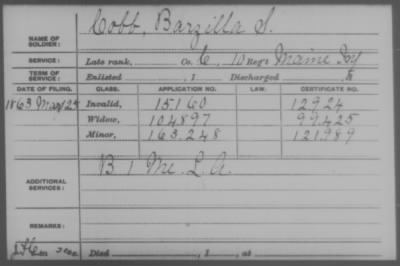 NAME OF SOLDIER: Cobb, Barzilla S.
SERVICE: Late rank, Co. C, 10 Reg't Maine Inf
TERM OF SERVICE: Enlisted , 1 Discharged , 1
DATE OF FILING. CLASS. APPLICATION NO. LAW. CERTIFICATE NO.
1863 May 25 Invalid, 15160 12924
Widow, 104897 99425
Minor, 163.248 121989
ADDITIONAL SERVICES: B 1 Me. L. A.
REMARKS:
Died , 1 , at